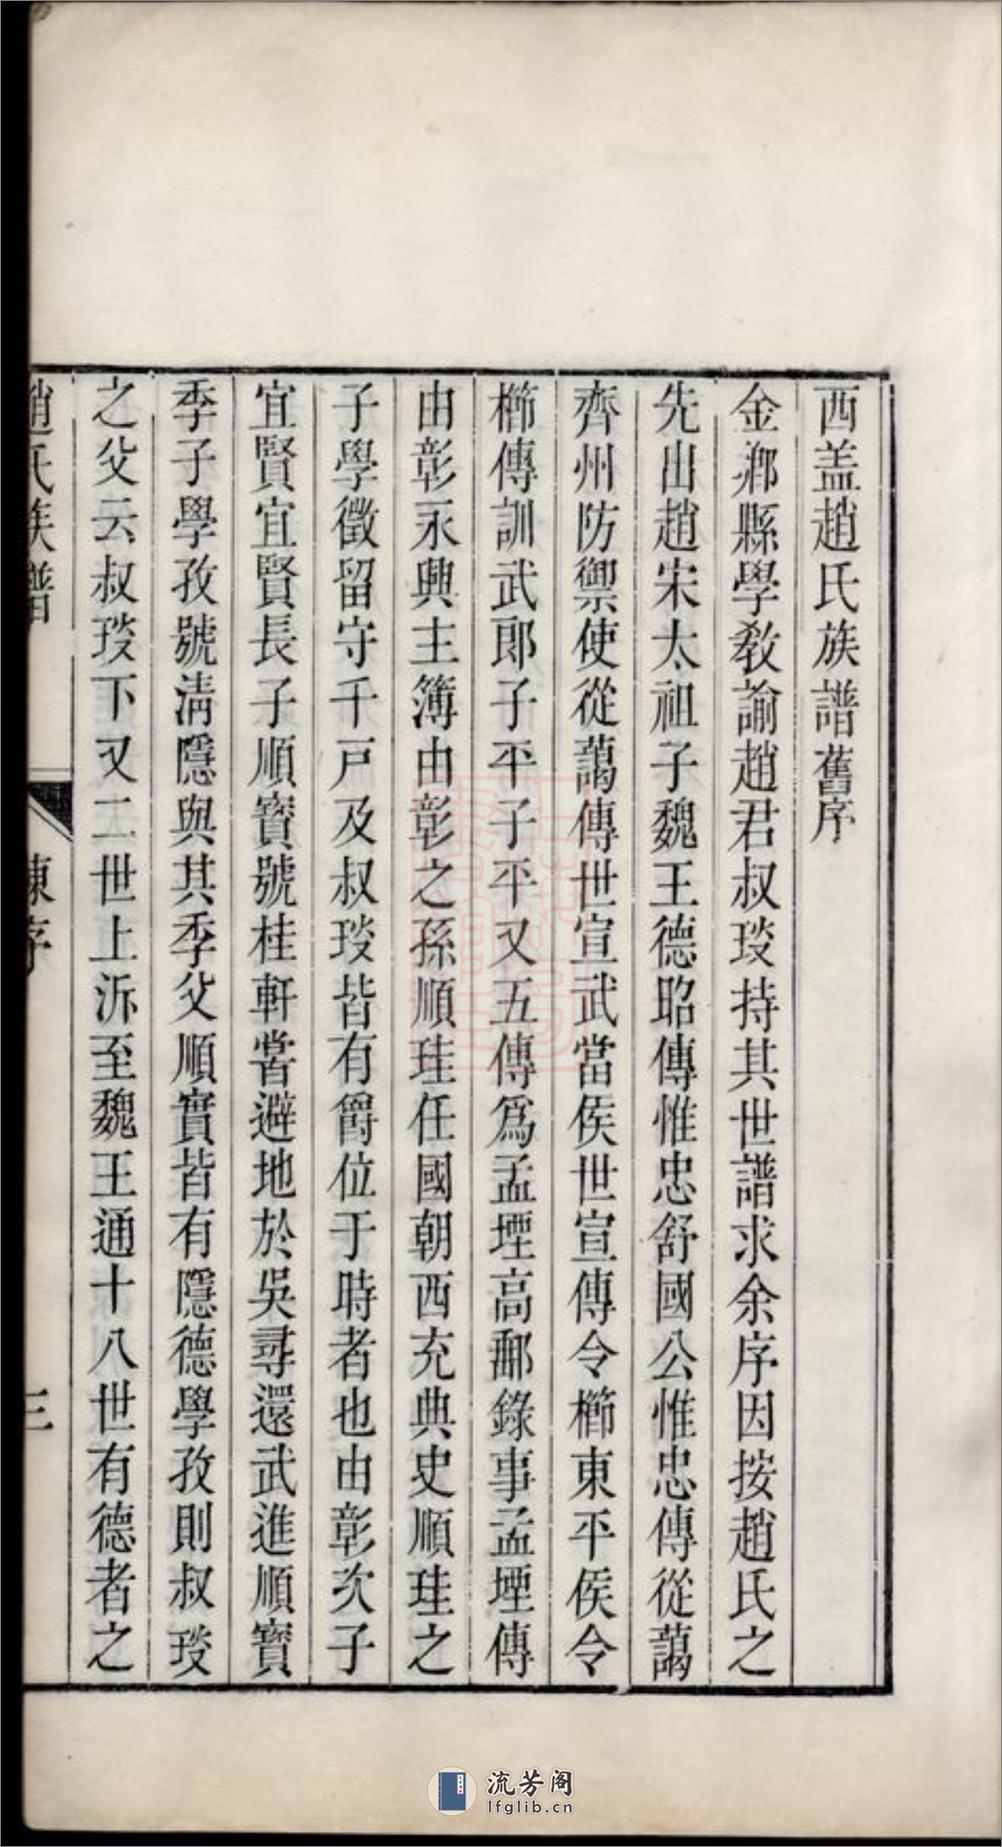 西盖趙氏族譜舊序
金鄕縣學敎諭趙君叔琰持其世譜求余序因按趙氏之
先出趙宋太祖子魏王德昭傳惟忠舒國公惟忠傳從藹
齊州防禦使從藹傳世宣武當侯世宣傳令櫛東平侯令
櫛傳訓武郎子平子平又五傳爲孟堙高郵錄事孟堙傳
由彰永興主簿由彰之孫順珪任國朝西充典史順珪之
子學徵留守千戸及叔琰皆有爵位于時者也由彰次子
宜賢宜賢長子順寶號桂軒嘗避地於吳尋還武進順寶
季子學孜號淸隱與其季父順實皆有隱德學孜則叔琰
之父云叔琰下又二世上泝至魏王通十八世有德者之
趙氏族譜
陳序
三
流芳阁
lfglib.cn